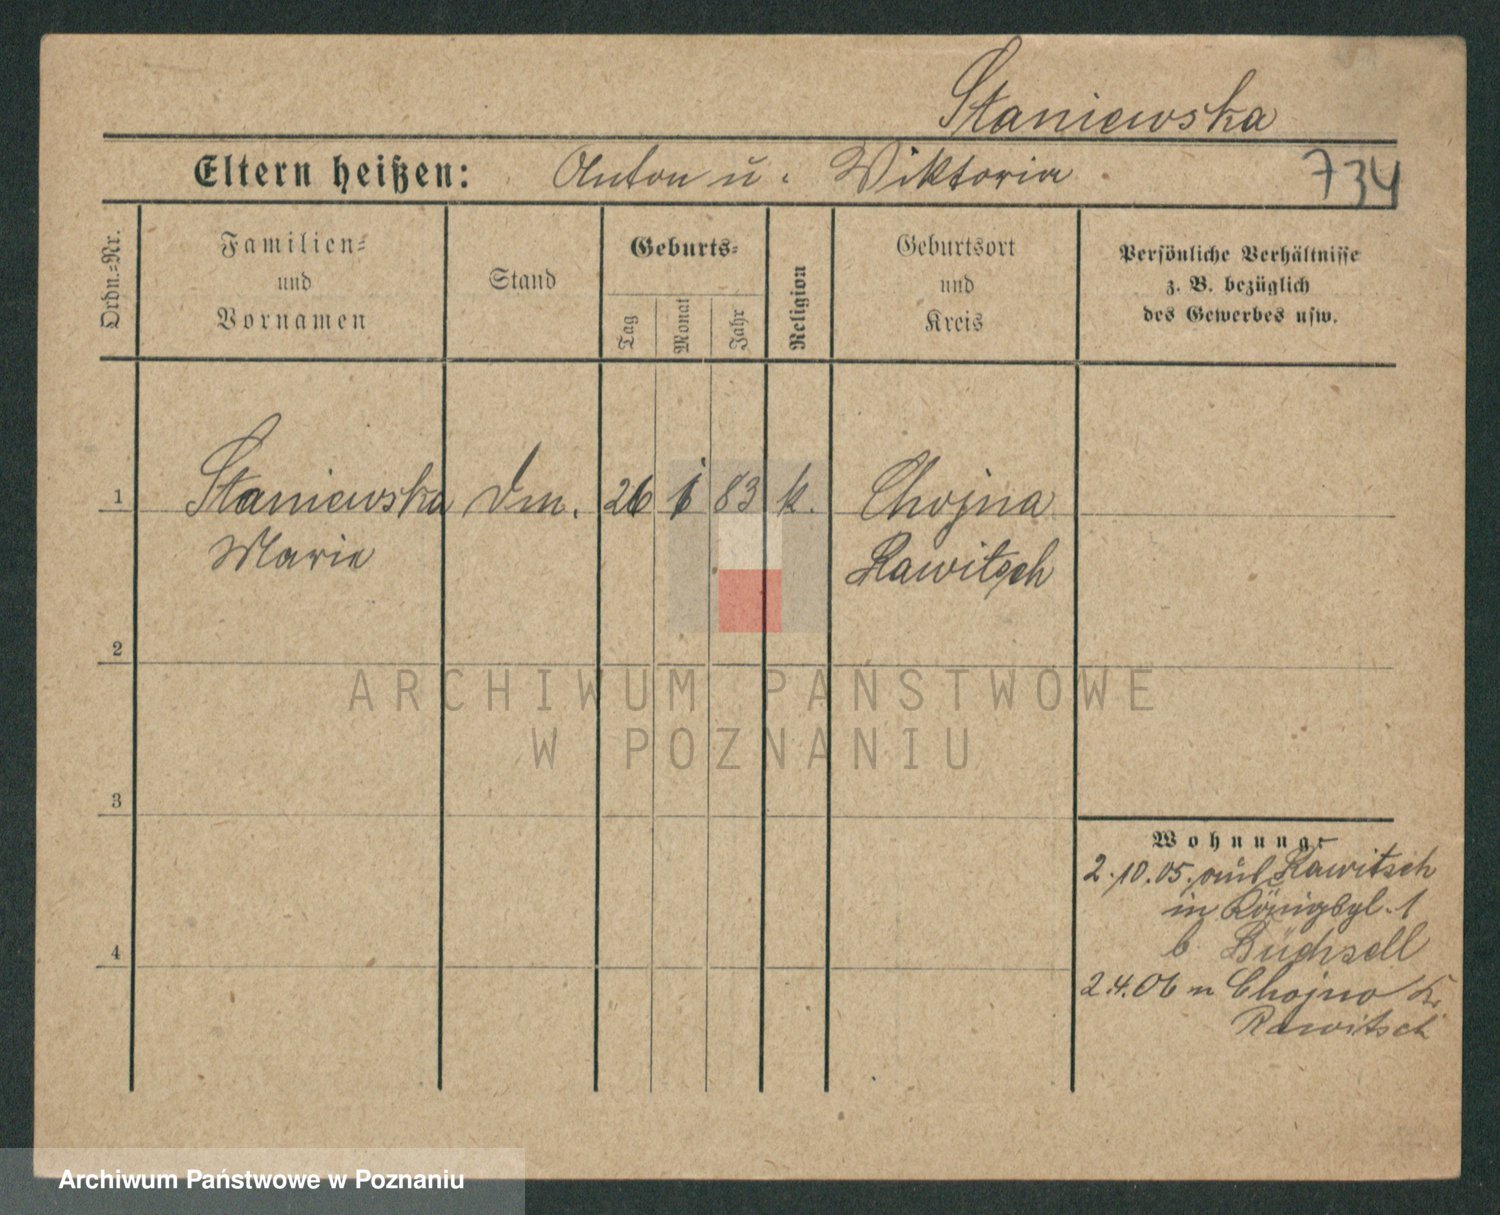 Staniewska
Eltern heißen: Anton u. Viktoria
734
Ordn.=Nr.
Familien=
und
Vornamen
Stand
Geburts=
Tag
Monat
Jahr
Religion
Geburtsort
und
Kreis
Persönliche Verhältnisse
z. B. bezüglich
des Gewerbes usw.
1
Staniewska 26 83 k. Chojna
Marie Rawitsch
2
ARCHIWUM PAŃSTWOWE
W POZNANIU
3
Wohnung
2.10.05. aus Rawitsch
in Königspl. 1
b Büchsell
2.4.06 n Chojno Kr.
Rawitsch
4
Archiwum Państwowe w Poznaniu